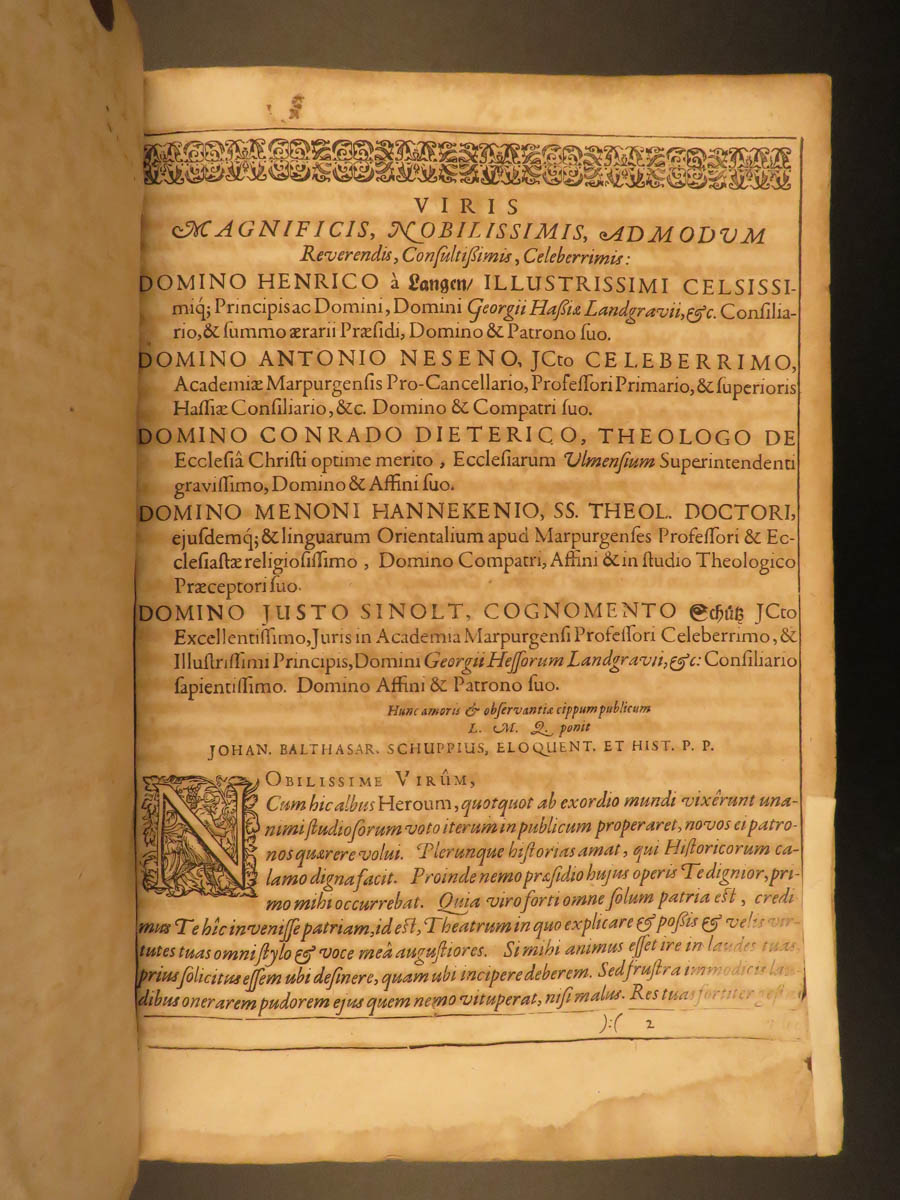 VIRIS
MAGNIFICIS, NOBILISSIMIS, ADMODVM
Reverendis, Conſultiſſimis, Celeberrimis:
DOMINO HENRICO à Langen/ ILLUSTRISSIMI CELSISSI-
miq́; Principis ac Domini, Domini Georgii Haſſiæ Landgravii, &c. Conſilia-
rio, & ſummo ærarii Præſidi, Domino & Patrono ſuo.
DOMINO ANTONIO NESENO, JCto CELEBERRIMO,
Academiæ Marpurgenſis Pro-Cancellario, Profeſſori Primario, & ſuperioris
Haſſiæ Conſiliario, &c. Domino & Compatri ſuo.
DOMINO CONRADO DIETERICO, THEOLOGO DE
Eccleſiâ Chriſti optime merito, Eccleſiarum Ulmenſium Superintendenti
graviſſimo, Domino & Affini ſuo.
DOMINO MENONI HANNEKENIO, SS. THEOL. DOCTORI,
ejuſdemq́; & linguarum Orientalium apud Marpurgenſes Profeſſori & Ec-
cleſiaſtæ religioſiſſimo, Domino Compatri, Affini & in ſtudio Theologico
Præceptori ſuo.
DOMINO JUSTO SINOLT, COGNOMENTO Schütz JCto
Excellentiſſimo, Juris in Academia Marpurgenſi Profeſſori Celeberrimo, &
Illuſtriſſimi Principis, Domini Georgii Heſſorum Landgravii, &c: Conſiliario
ſapientiſſimo. Domino Affini & Patrono ſuo.
Hunc amoris & obſervantiæ cippum publicum
L. M. Q. ponit
JOHAN. BALTHASAR. SCHUPPIUS, ELOQUENT. ET HIST. P. P.
NOBILISSIME VIRÛM,
Cum hic albus Heroum, quotquot ab exordio mundi vixêrunt una-
nimi ſtudioſorum voto iterum in publicum properaret, novos ei patro-
nos quærere volui. Plerunque hiſtorias amat, qui Hiſtoricorum ca-
lamo digna facit. Proinde nemo præſidio hujus operis Te dignior, pri-
mo mihi occurrebat. Quia viro forti omne ſolum patria eſt, credi
mus Te hîc inveniſſe patriam, id eſt, Theatrum in quo explicare & poßis & velis vir-
tutes tuas omni ſtylo & voce meâ auguſtiores. Si mihi animus eſſet ire in laudes tuas,
prius ſolicitus eſſem ubi deſinere, quam ubi incipere deberem. Sed fruſtra immodicis lau-
dibus onerarem pudorem ejus quem nemo vituperat, niſi malus. Res tuas fortiter
):( 2